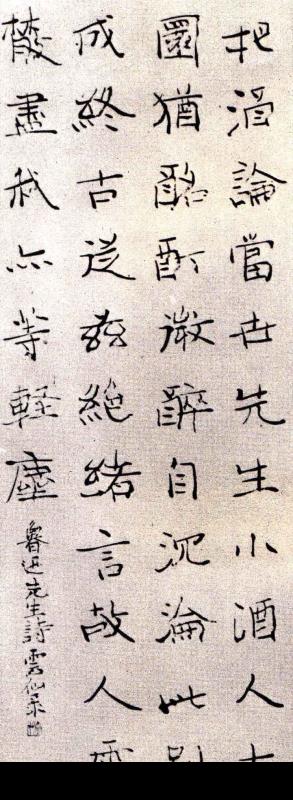 把酒論當世先生小酒人大
圜猶酩酊微醉自沉淪此别
成終古從兹絕緒言故人雲
散盡我亦等輕塵
魯迅先生詩 雲